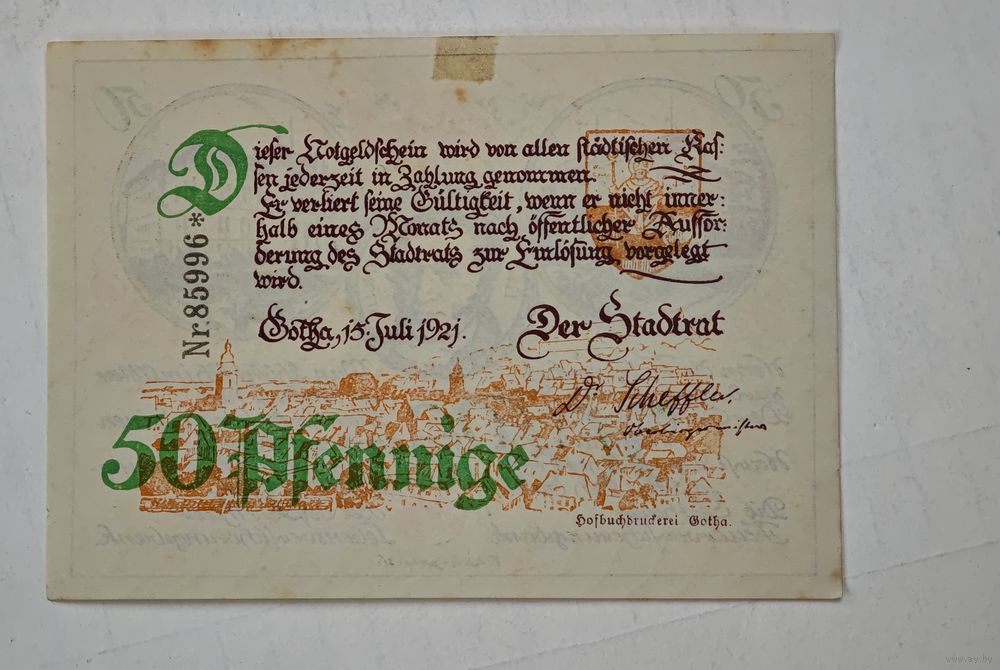 Dieser Notgeldschein wird von allen städtischen Kas:
sen jederzeit in Zahlung genommen.
Er verliert seine Gültigkeit, wenn er nicht inner:
halb eines Monats nach öffentlicher Auffor:
derung des Stadtrats zur Einlösung vorgelegt
wird.
Gotha, 15. Juli 1921.
Der Stadtrat
Dr Scheffler.
Oberbürgermeister
Nr. 85996 *
50 Pfennige
Hofbuchdruckerei Gotha.
50
50
www.ay.by